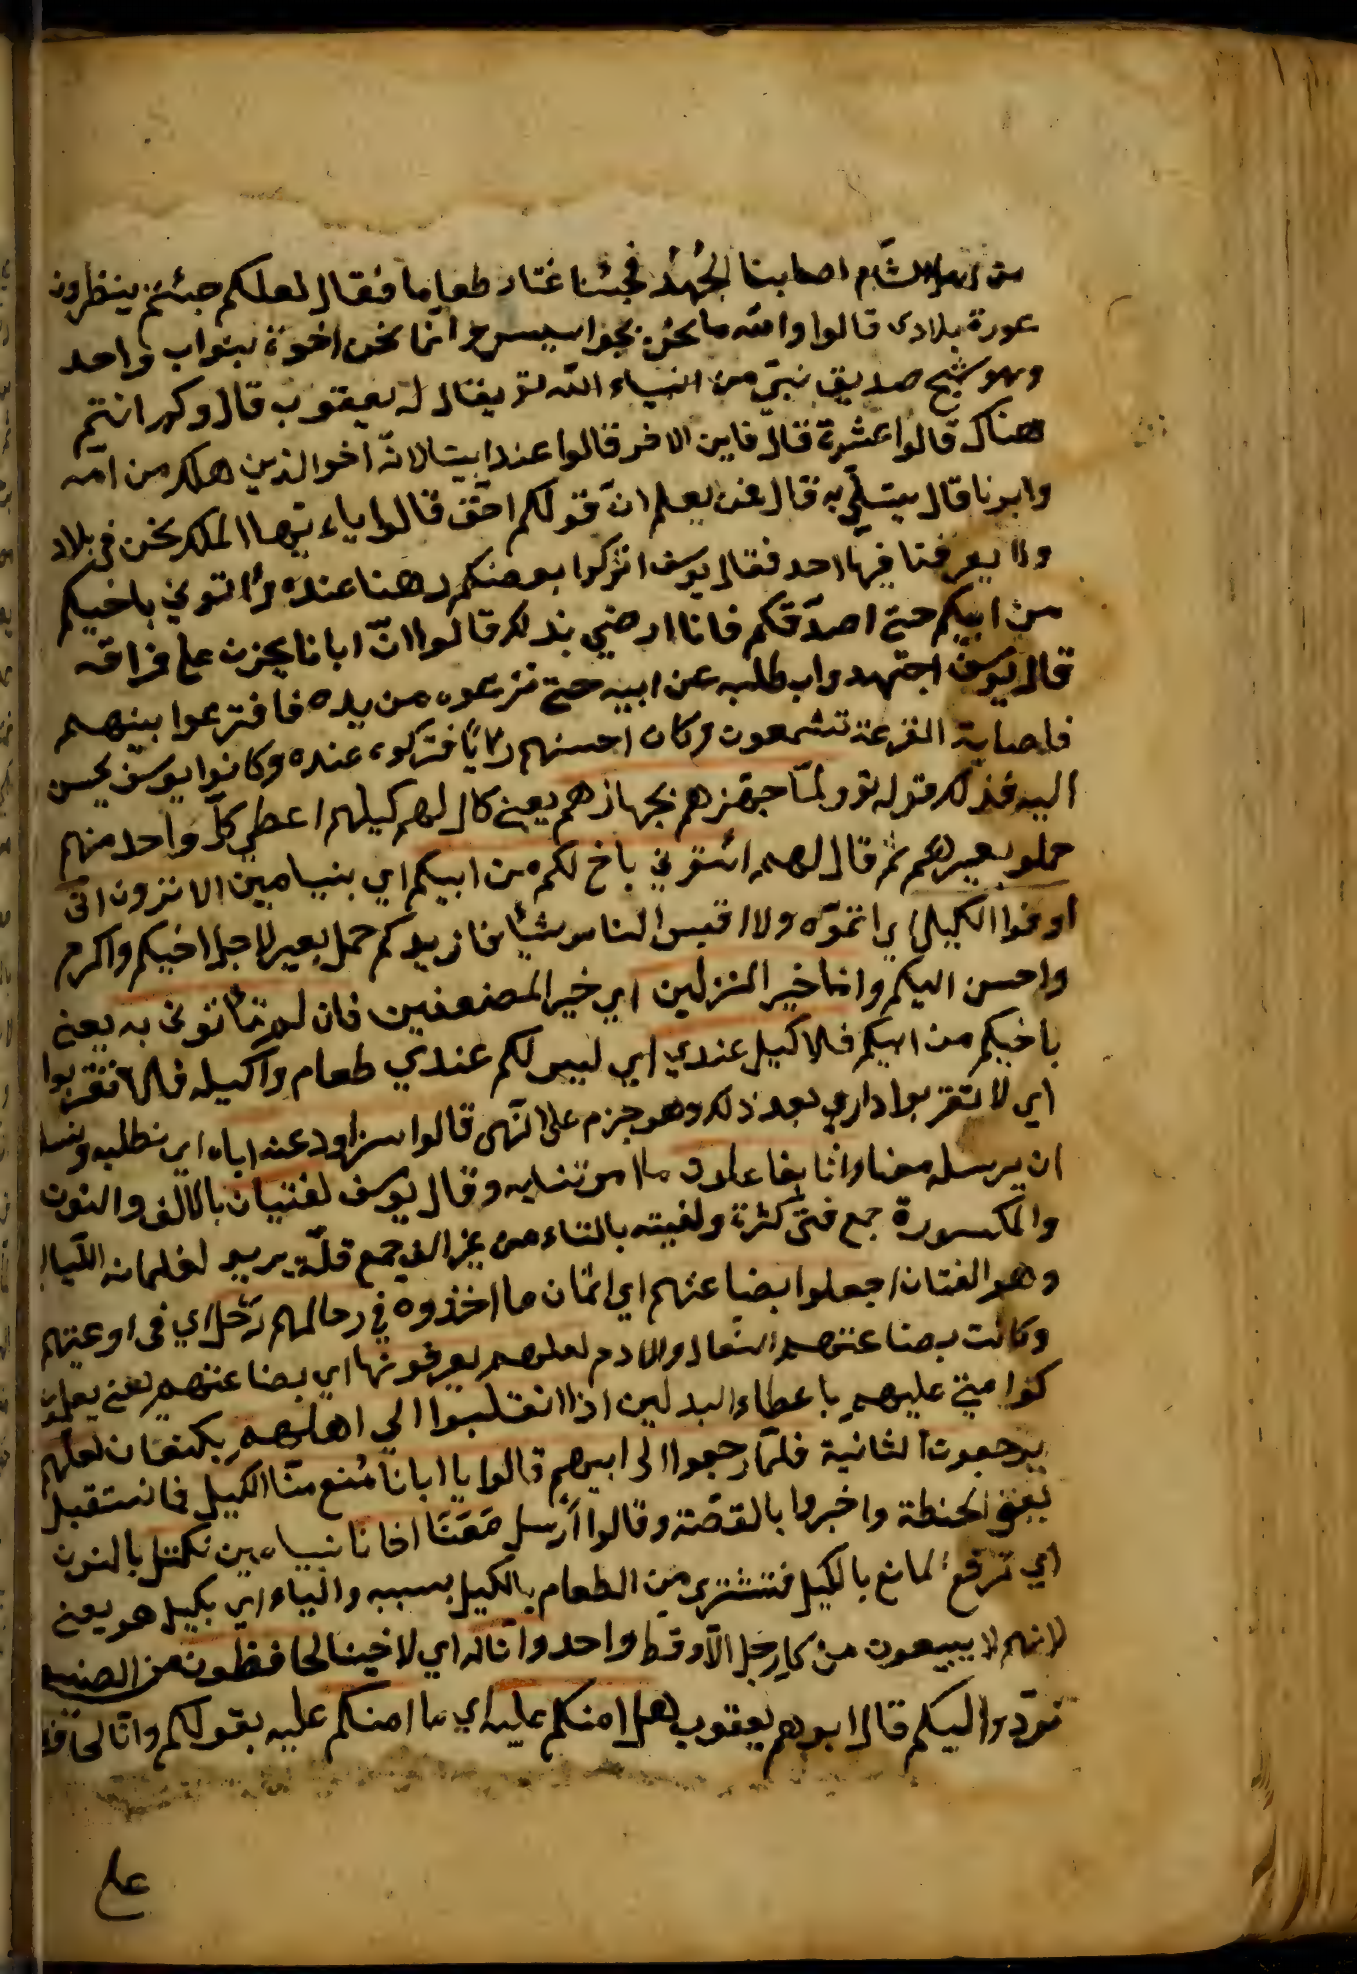 من اهل الشام اصابنا الجُهدُ فجئنا نمتار طعاما فقال لعلكم جئتم ينظرون
عورة بلادى قالوا والله ما نحن بجواسيس وانما نحن اخوة بنواب واحد
وهو شيخ صديق نبيّ من انبياء الله تع يقال له يعقوب قال وكم انتم
هناك قالوا عشرة قال فاين الاخر قالوا عند ابينا لانه اخو الذين هلك من امه
وابونا قال يتسلّى به قال فمن يعلم انّ قولكم احق قالوا ياءيها الملك نحن فى بلاد
ولا يعرفنا فيها احد فقال يوسف اتركوا بعضكم رهنا عنده وأتوني باخيكم
من ابيكم حتى اصدّقكم فانا ارضي بذلك قالوا انّ ابانا يحزن على فراقه
قال يوسف اجتهدوا ب طلبه عن ابيه حتى تنزعوه من يده فاقترعوا بينهم
فاصابة القرعة تشمعون وكان احسنهم رايًا فتركوه عنده وكانوا يوسف يحسن
اليه فذلك قوله تع ولمّا جهّزهم بجهازهم يعنى كال لهم كيلهم اعطي كلّ واحد منهم
حملو بعيرهم ثم قال لهم ائتوني باخ لكم من ابيكم اي بنيامين الا ترون انّى
اوفوا الكيل اي اتمّوه ولا اقبس الناس شئا فازيدكم حمل بعير لاجل اخيكم واكرم
واحسن اليكم وانا خير المنزلين اي خير المضعفين فان لم تأتونى به يعنى
باخيكم من ابيكم فلا كيل عندي اي ليس لكم عندي طعام واكيله فلا تقربوا
اي لا تقربوا داري بعد ذلك وهو جزم على النّهى قالوا سنراود عنه اباه اي نطلبه ونسا
ان يرسله معنا وانا لفاعلون ما امرتنا به وقال يوسف لفتيان بالالف والنون
والمكسورة جمع فتى كثرة ولفيته بالتاء من غير الف جمع قلّة يريد لغلمانه الكيال
وهو الفتان اجعلوا بضاعتهم اي اثمان ما اخذوه في رحالهم رَحل اي فى اوعيتهم
وكانت بضاعتهم النعال والادم لعلهم يعرفونها اي بضاعتهم يعنى يعلمون
كرامتي عليهم باعطاء البدلين اذا انقلبوا الي اهلهم بكنعان لعلّهم
يرجعون الثانية فلمّا رجعوا الى ابيهم قالوا يا ابانا مُنع منّا الكيل فانستقبل
يعنى الحنطة واخبروا بالقصّة وقالوا أرسل مَعَنَا اخانا بنيامين نكتل بالنون
اي ترفع المانع بالكيل فنشترى من الطعام بالكيل بسببه والياء اي بكيل هو يعنى
لانهم لا يبيعون من كل رجل الا وقط واحد وانا له اي لاخينا لحافظون من الضيه
نردّه اليكم قال ابوهم يعقوب هل امنكم عليه اي ما امنكم عليه بقولكم وانا لحافظ
على